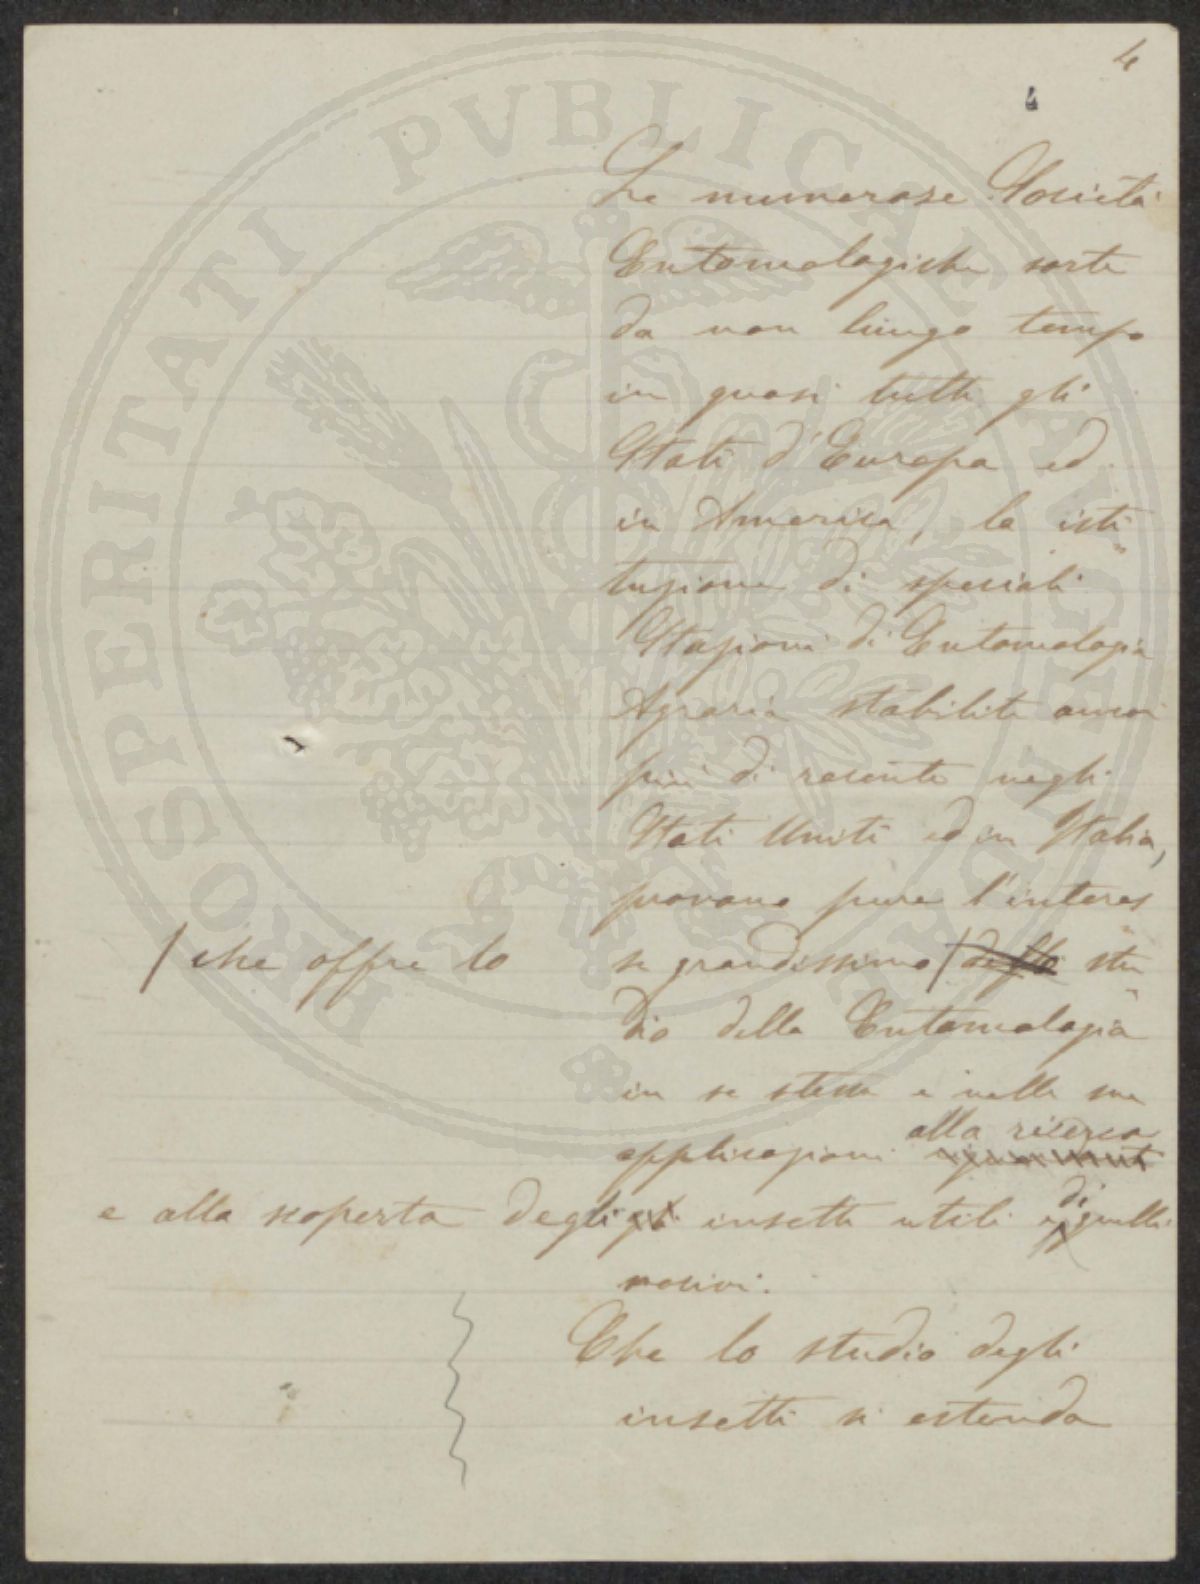 4
4
Le numerose Società
Entomologiche sorte
da non lungo tempo
in quasi tutti gli
Stati d'Europa ed
in America, la isti
tuzione di speciali
Stazioni di Entomologia
Agraria stabilite ancor
più di recente negli
Stati Uniti ed in Italia,
provano pure l'interes
/ che offre lo
se grandissimo / dello stu
dio della Entomologia
in se stessa e nelle sue
alla ricerca
applicazioni
e alla scoperta degli insetti utili e di quelli
nocivi.
Che lo studio degli
insetti si estenda
PROSPERITATI PVBLICAE AVGENDAE